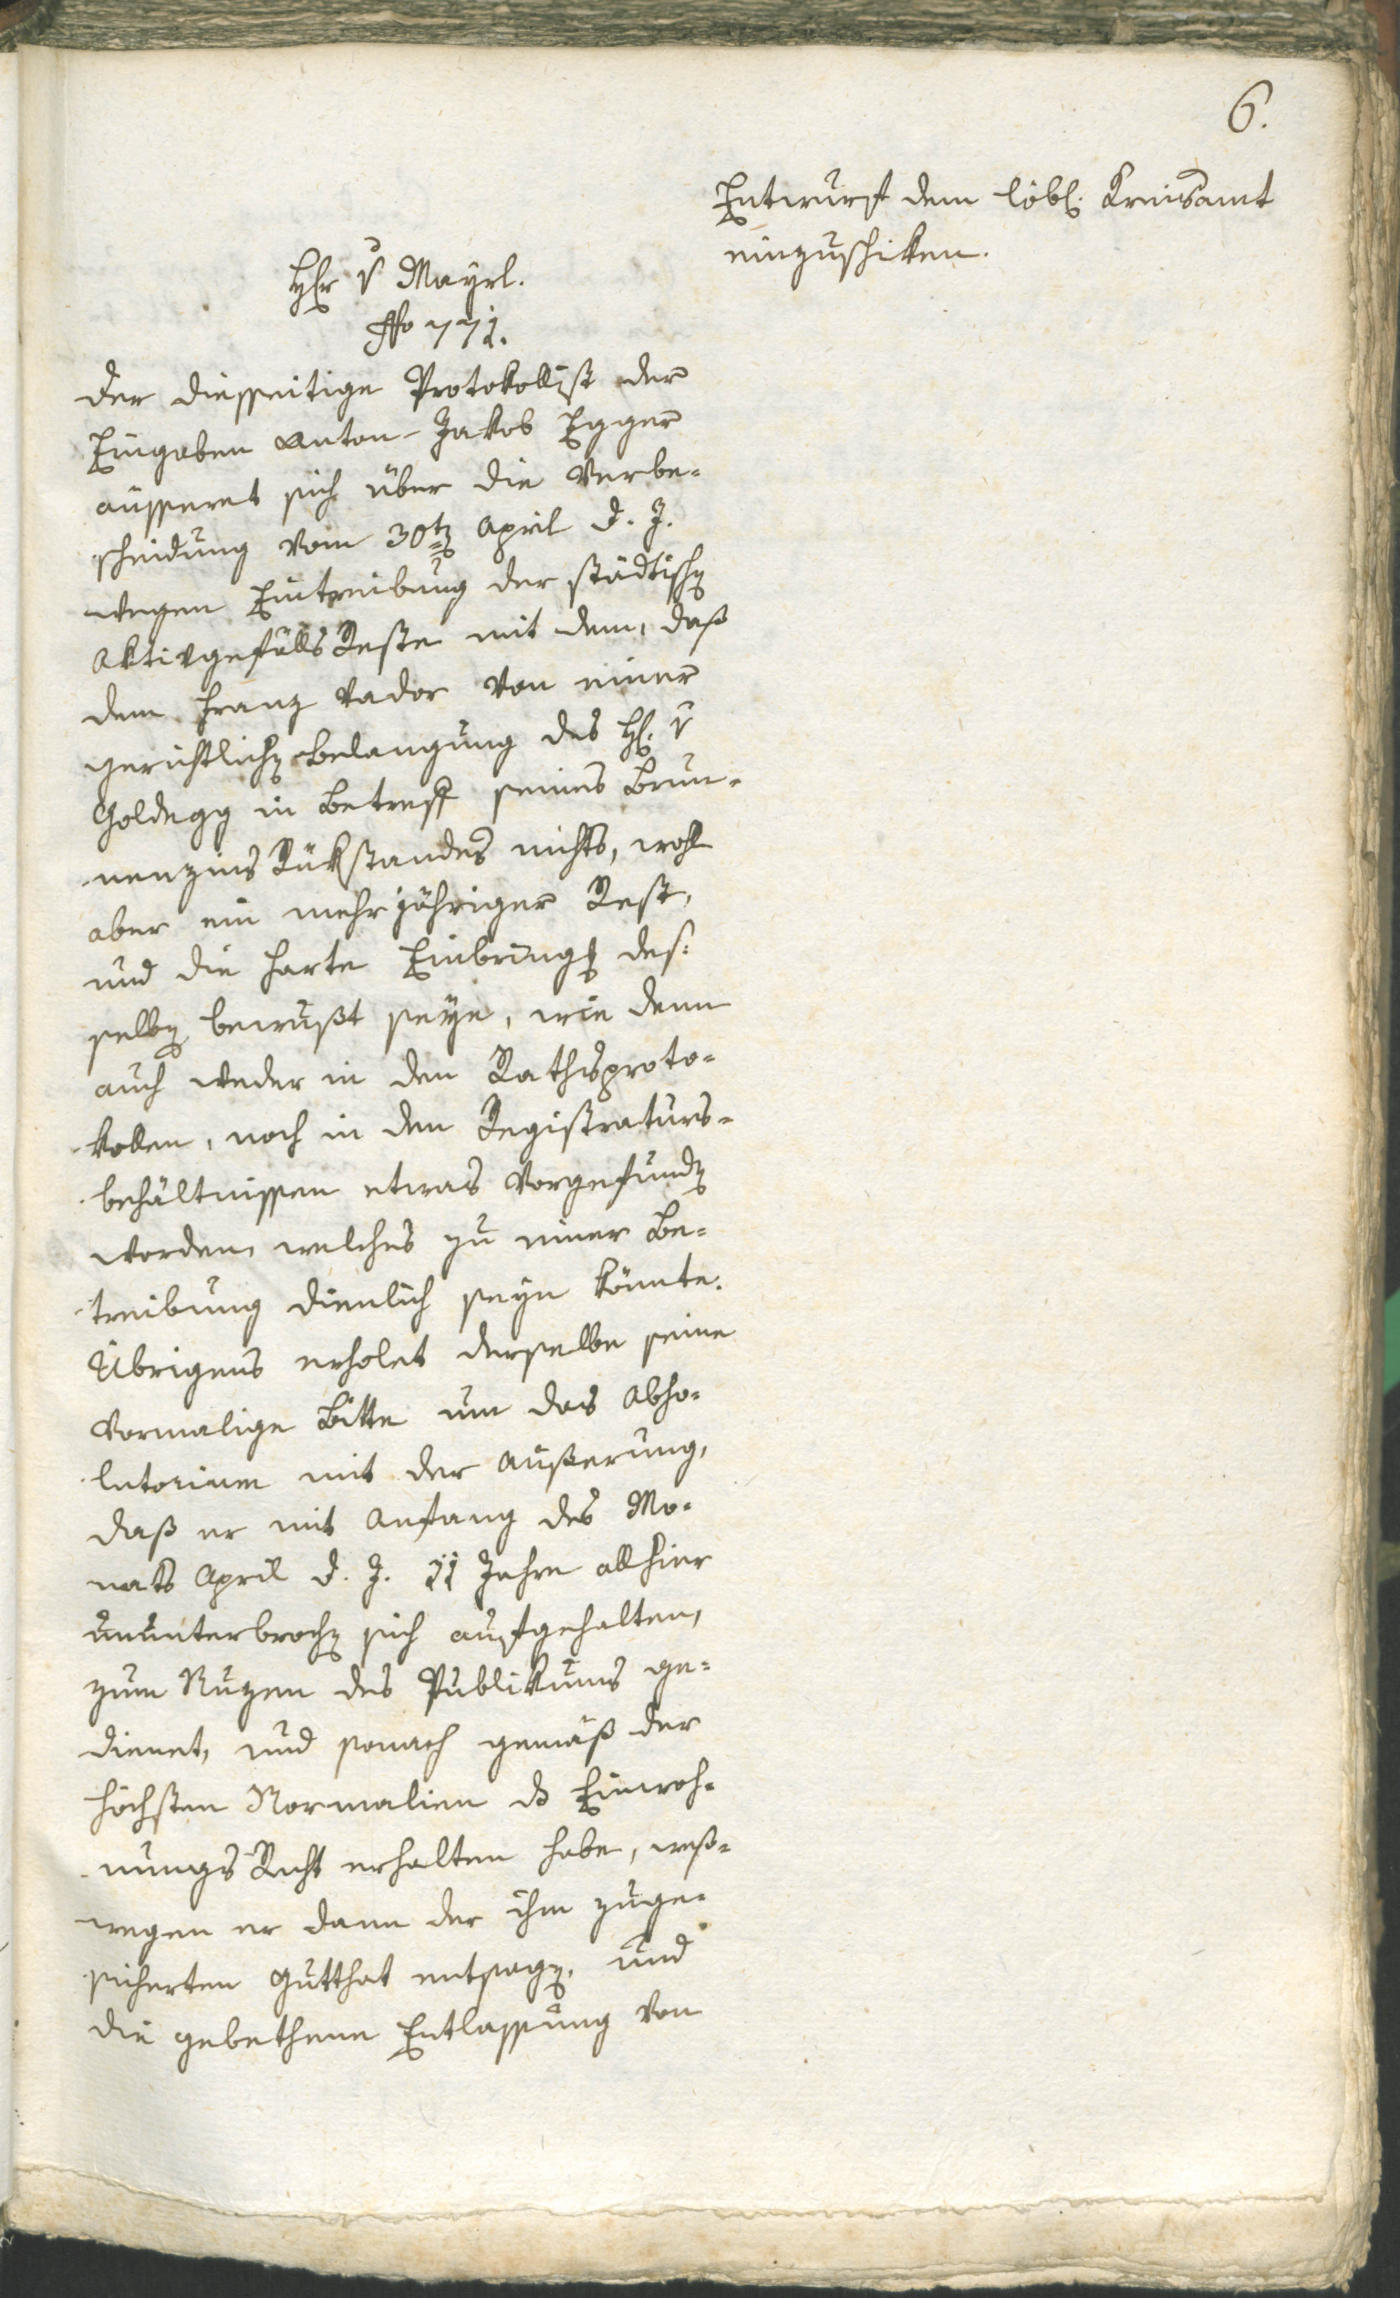 6.
Entwurf dem löbl. Kreisamt
einzuschiken.
Hr v Mayrl.
No 771.
Der diesseitige Protokollist der
Eingaben Anton-Jakob Egger
äusseret sich über die Verbe-
scheidung vom 30ten April d. J.
wegen Eintreibung der städtischen
Aktivgefälls Reste mit dem, daß
dem Franz Vador von einer
gerichtlichen Belangung des H. v
Goldegg in Betreff seines Brun-
nenzins Rükstandes nichts, wohl
aber ein mehrjähriger Rest,
und die harte Einbringung des-
selben bewußt seye, wie denn
auch weder in den Rathsproto-
kollen, noch in den Registraturs-
behältnissen etwas vorgefunden
worden, welches zu einer Be-
treibung dienlich seyn könnte.
Übrigens erholet derselbe seine
vormalige Bitte um das Abso-
lutorium mit der Außerung,
daß er mit Anfang des Mo-
nats April d. J. 11 Jahre allhier
ununterbrochen sich aufgehalten,
zum Nuzen des Publikums ge-
dienet, und sonach gemäß der
höchsten Normalien das Einwoh-
nungs Recht erhalten habe, weß-
wegen er dann der ihm zuge-
sicherten Gutthat entsage, und
die gebethene Entlassung von